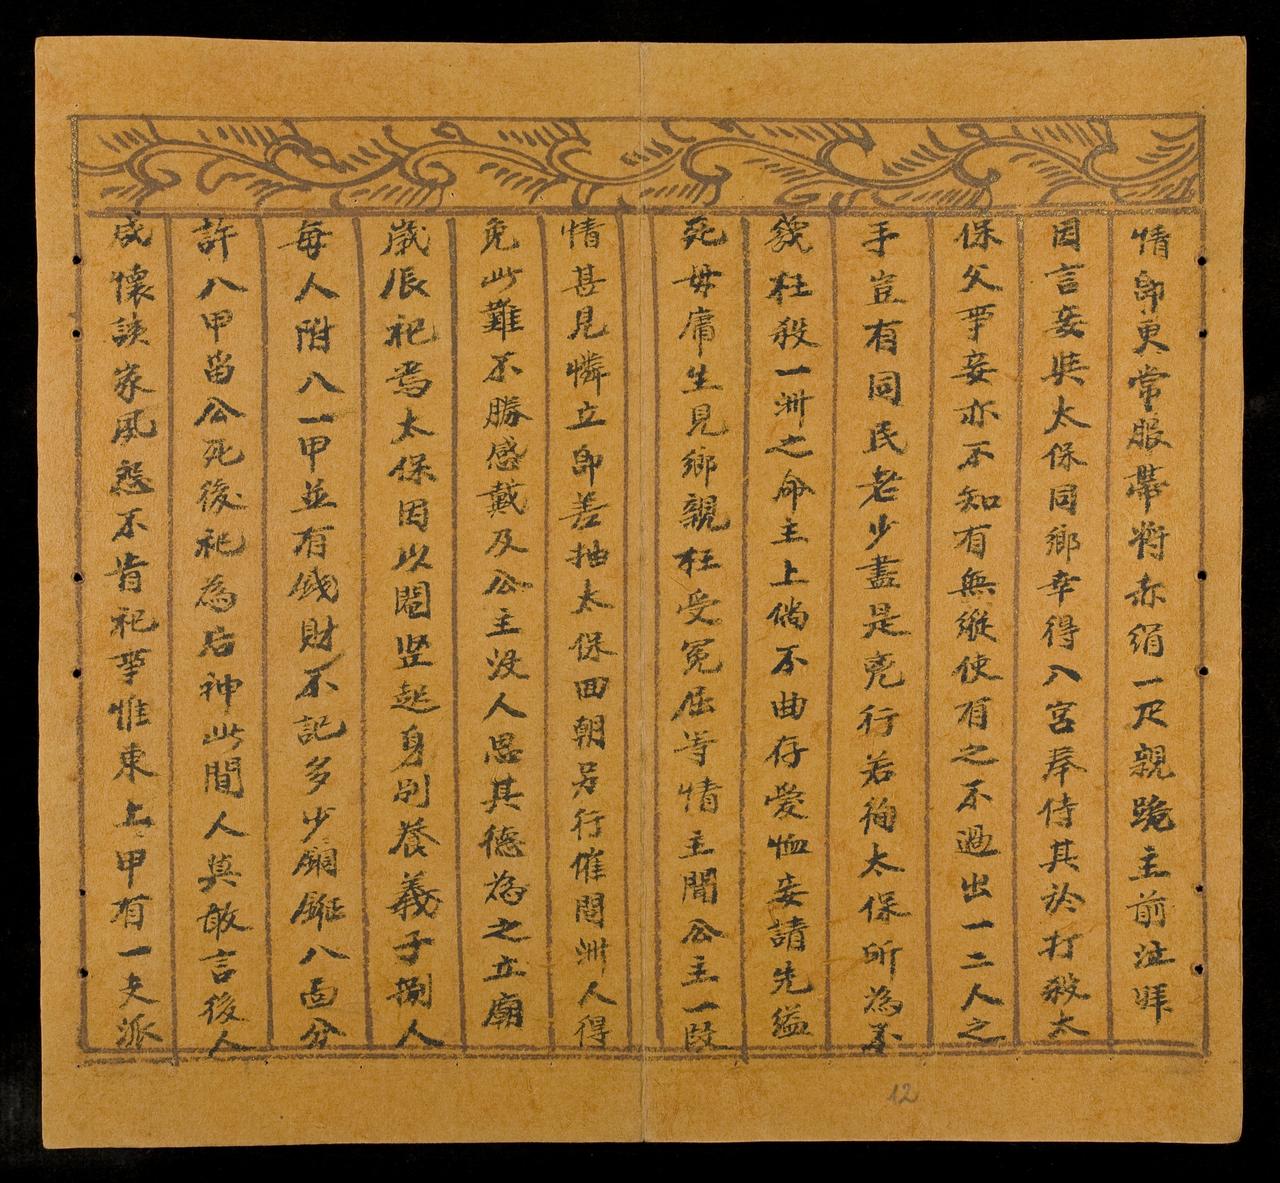 情即更常服帶將赤絹一疋親跪主前泣拜
因言妾與太保同鄉幸得入宮奉侍其於打殺太
保父事妾亦不知有無縱使有之不過出一二人之
手豈有同民老少盡是兇行若徇太保所為不
幾枉殺一洲之命主上倘不曲存愛恤妾請先縊
死毋庸生見鄉親枉受冤屈等情主聞公主一段
情甚見憐立即差抽太保回朝另行催問洲人得
免此難不勝感戴及公主沒人思其德為之立廟
歲辰祀焉太保因以閹豎起身別養義子捌人
每人附八一甲並有錢財不記多少鍋鏘八面分
許八甲當公死後祀為后神此間人莫敢言後人
咸懷談家風怨不肯祀事惟東上甲有一支派
12